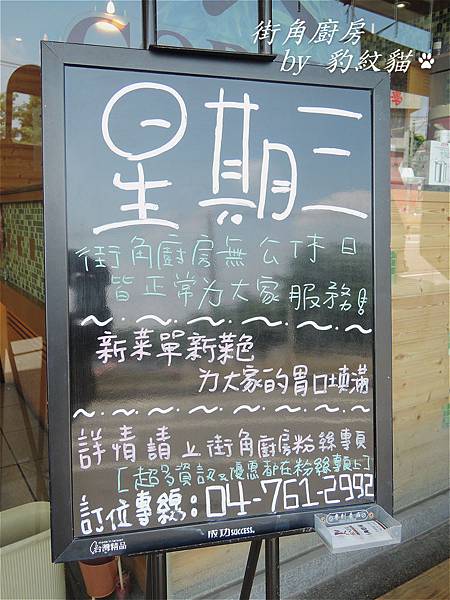 街角廚房
by 豹紋貓
星期三
街角廚房無公休日
皆正常为大家服務!!
新菜單新菜色
为大家的胃口填滿
詳情請上街角廚房粉絲專頁
[超多資訊及優惠都在粉絲專頁上]
訂位專線:04-761-2992
成功 SUCCESS
台灣精品